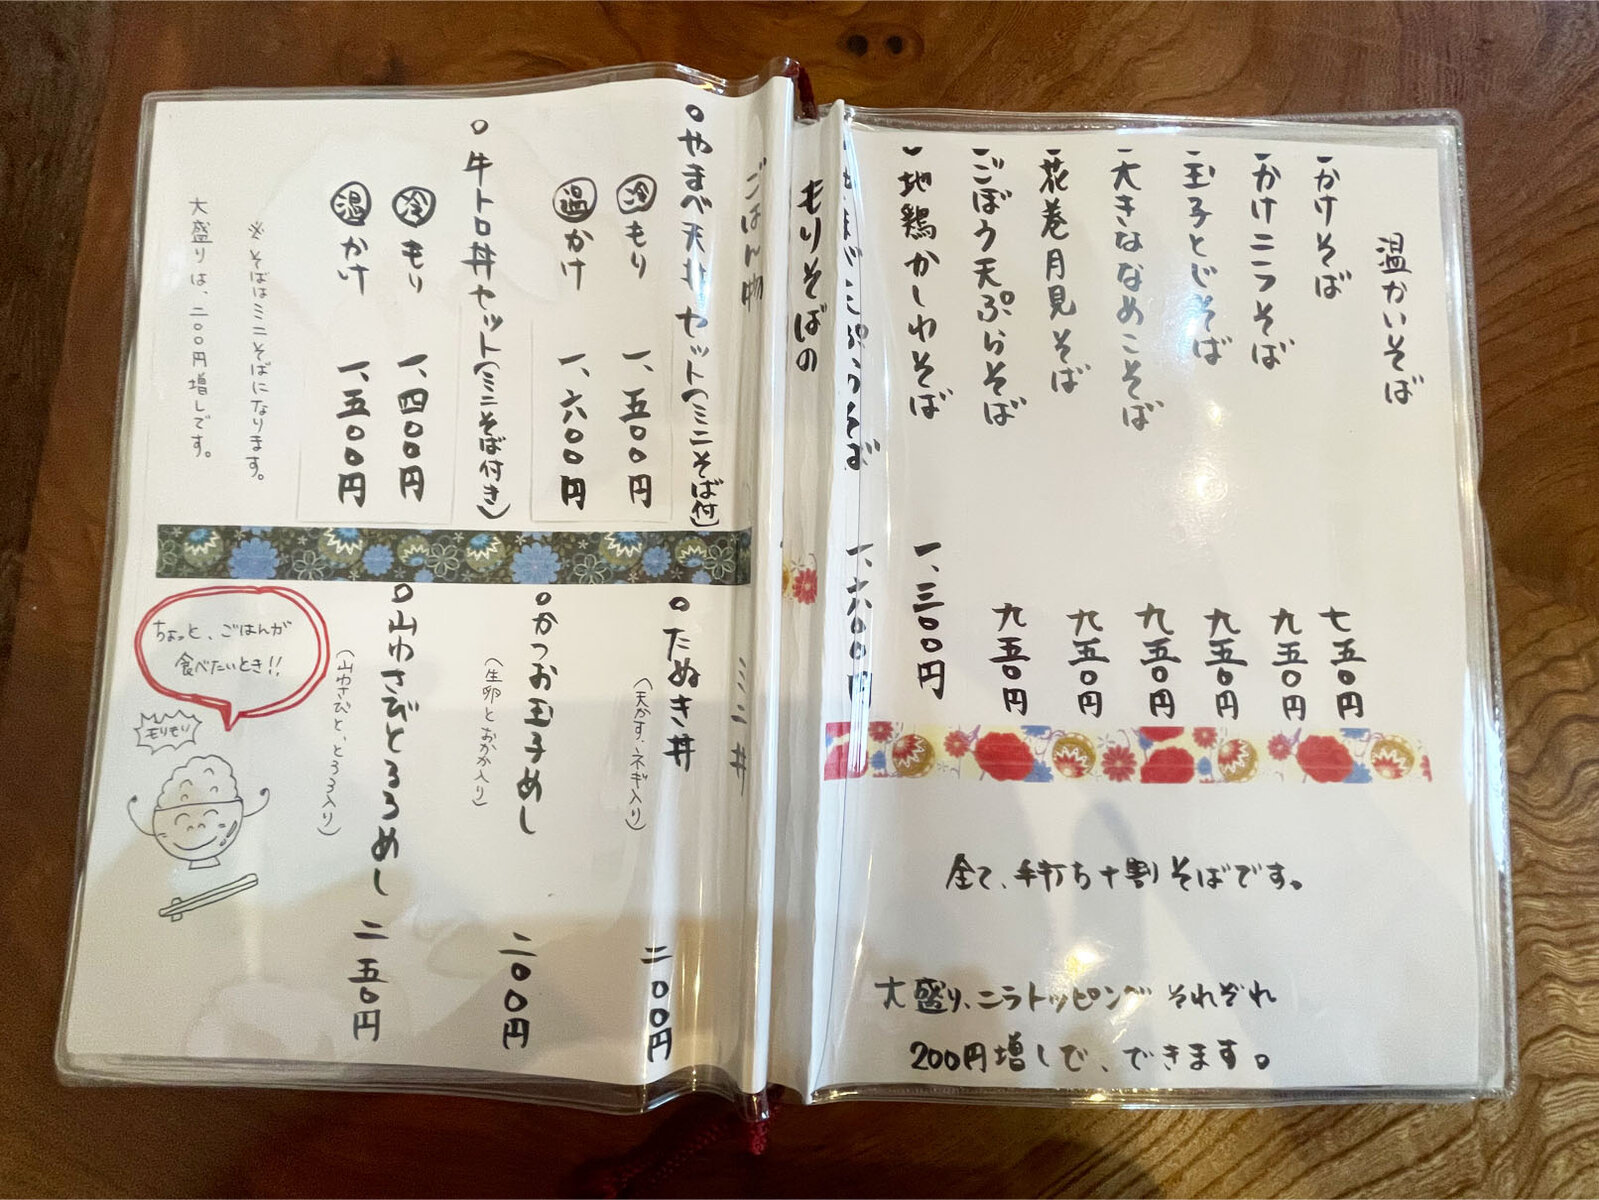 温かいそば
かけそば 七五〇円
かけニラそば 九五〇円
玉子とじそば 九五〇円
大きななめこそば 九五〇円
花巻月見そば 九五〇円
ごぼう天ぷらそば 九五〇円
地鶏かしわそば 一、三〇〇円
そば 一、六〇〇円
全て、手打ち十割そばです。
大盛り、ニラトッピング それぞれ
200円増しで、できます。
もりそばの
ごはん物
○やまべ天丼セット(ミニそば付)
冷 もり 一、五〇〇円
温 かけ 一、六〇〇円
○牛トロ丼セット(ミニそば付き)
冷 もり 一、四〇〇円
温 かけ 一、五〇〇円
※そばはミニそばになります。
大盛りは、二〇〇円増しです。
ミニ丼
○たぬき丼 二〇〇円
(天かす、ネギ入り)
○かつお玉子めし 二〇〇円
(生卵とおかか入り)
○山わさびとろろめし 二五〇円
(山わさびと、とろろ入り)
ちょっと、ごはんが
食べたいとき!!
モリモリ